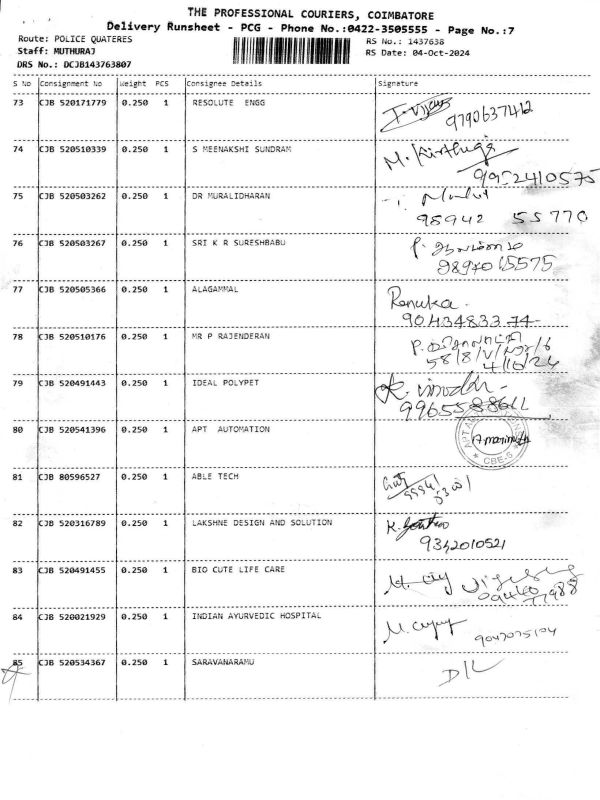 THE PROFESSIONAL COURIERS, COIMBATORE
Delivery Runsheet - PCG - Phone No.:0422-3505555 - Page No.:7
Route: POLICE QUATERES
RS No.: 1437638
Staff: MUTHURAJ
RS Date: 04-Oct-2024
DRS No.: DCJB143763807
S No Consignment No Weight PCS Consignee Details Signature
73 CJB 520171779 0.250 1 RESOLUTE ENGG
9790637412
74 CJB 520510339 0.250 1 S MEENAKSHI SUNDRAM M. Kirthuga
9952410575
75 CJB 520503262 0.250 1 DR MURALIDHARAN
95942 55770
76 CJB 520503267 0.250 1 SRI K R SURESHBABU
77 CJB 520505366 0.250 1 ALAGAMMAL Renuka.
9043483374
78 CJB 520510176 0.250 1 MR P RAJENDERAN
4/10/24
79 CJB 520491443 0.250 1 IDEAL POLYPET
80 CJB 520541396 0.250 1 APT AUTOMATION
CBE-6
81 CJB 80596527 0.250 1 ABLE TECH
82 CJB 520316789 0.250 1 LAKSHNE DESIGN AND SOLUTION
9342010521
83 CJB 520491455 0.250 1 BIO CUTE LIFE CARE
84 CJB 520021929 0.250 1 INDIAN AYURVEDIC HOSPITAL
85 CJB 520534367 0.250 1 SARAVANARAMU D/L